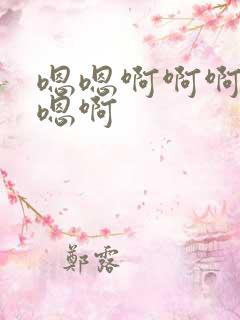 嗯嗯啊啊啊
嗯啊
鄭露